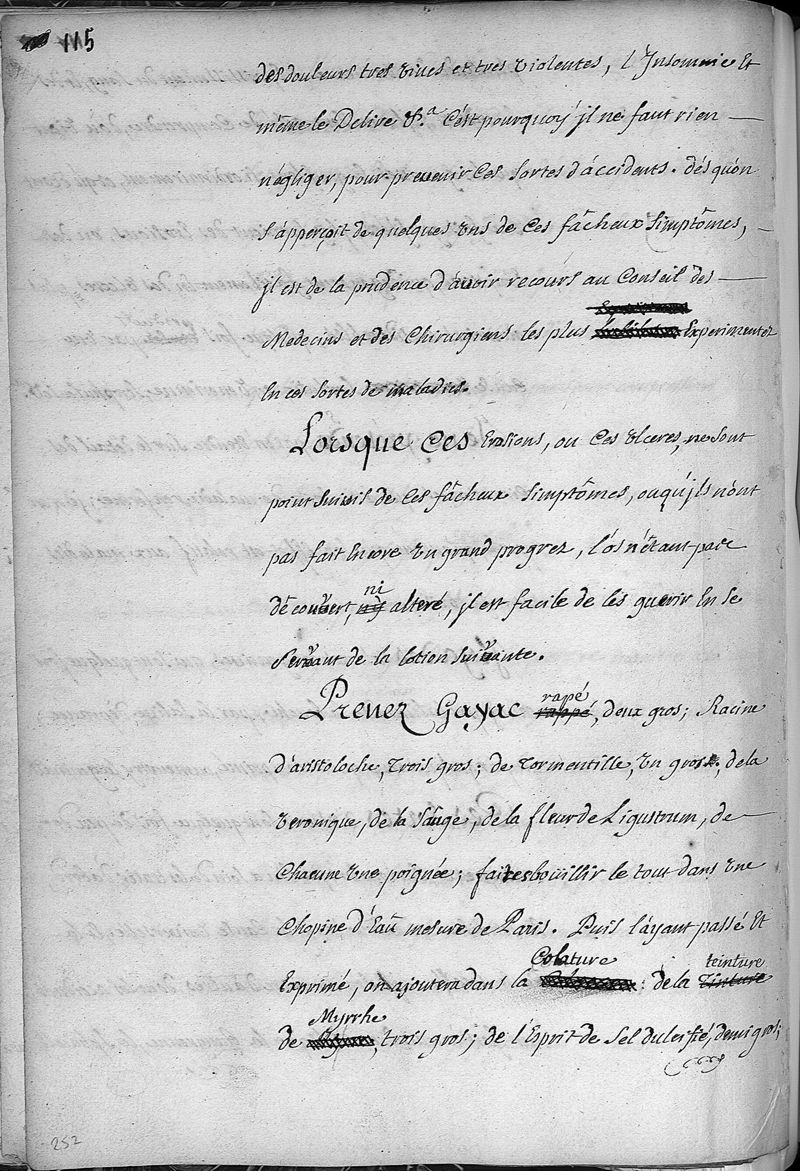 115
des douleurs tres vives et tres violentes, l'Insomnie Et
même le Delire &.a C'est pourquoÿ jl ne faut rien —
négliger, pour prevenir Ces sortes d'áccidents. dés qu'on
s'apperçoit de quelques uns de Ces fâcheux Simptômes, —
jl est de la prudence d'avoir recours au Conseil des —
Medecins et des Chirurgiens les plus Experimentez
En ces sortes de maladies.
Lorsque Ces Erosions, ou Ces Ulceres, ne sont
point suivis de Ces fâcheux Simptômes, ou qu'jls n'ont
pas fait Encore un grand progrez, l'os n'étant pas
découvert, ni alteré, jl est facile de les guerir En se
servant de la lotion suivante.
rapé
Prenez Gayac rappé, deux gros; Racine
d'aristoloche, trois gros; de Tormentille, un gros; de la
veronique, de la Sauge, de la fleur de Ligustrum, de —
Chacune une poignée; faites bouillir le tout dans une
Chopine d'Eau mesure de Paris. Puis l'ayant passé Et
Colature teinture
Exprimé, on ajoutera dans la : de la Tinture
Myrrhe
de , trois gros; de l'Esprit de Sel dulcifié, demi gros;
252